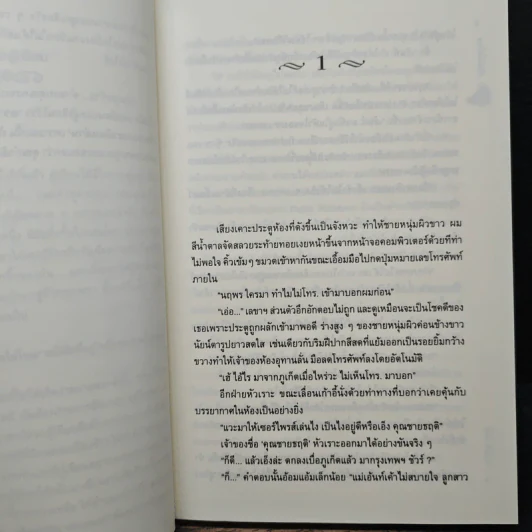 ~ 1 ~
เสียงเคาะประตูห้องที่ดังขึ้นเป็นจังหวะ ทำให้ชายหนุ่มผิวขาว ผม
สีน้ำตาลจัดสลวยระท้ายทอยเงยหน้าขึ้นจากหน้าจอคอมพิวเตอร์ด้วยทีท่า
ไม่พอใจ คิ้วเข้มๆ ขมวดเข้าหากันขณะเอื้อมมือไปกดปุ่มหมายเลขโทรศัพท์
ภายใน
"นฤพร ใครมา ทำไมไม่โทร. เข้ามาบอกผมก่อน"
"เอ่อ..." เลขาฯ ส่วนตัวอึกอักตอบไม่ถูก และดูเหมือนจะเป็นโชคดีของ
เธอเพราะประตูถูกผลักเข้ามาพอดี ร่างสูง ๆ ของชายหนุ่มผิวค่อนข้างขาว
นัยน์ตารูปยาวสดใส เช่นเดียวกับริมฝีปากสีสดที่แย้มออกเป็นรอยยิ้มกว้าง
ขวางทำให้เจ้าของห้องอุทานลั่น มือลดโทรศัพท์ลงโดยอัตโนมัติ
"เฮ้ ไอ้ไร มาจากภูเก็ตเมื่อไหร่วะ ไม่เห็นโทร. มาบอก"
อีกฝ่ายหัวเราะ ขณะเลื่อนเก้าอี้นั่งด้วยท่าทางที่บอกว่าเคยคุ้นกับ
บรรยากาศในห้องเป็นอย่างยิ่ง
"แวะมาให้เซอร์ไพรส์เล่นไง เป็นไงอยู่ดีหรือเอ็ง คุณชายชฤติ"
เจ้าของชื่อ 'คุณชายชฤติ' หัวเราะออกมาได้อย่างขันจริง ๆ
"ก็ดี... แล้วเอ็งล่ะ ตกลงเบื่อภูเก็ตแล้ว มากรุงเทพฯ ชัวร์ ?"
"ก็..." คำตอบนั้นอ้อมแอ้มเล็กน้อย "แม่เอ้นท์เค้าไม่สบายใจ ลูกสาว